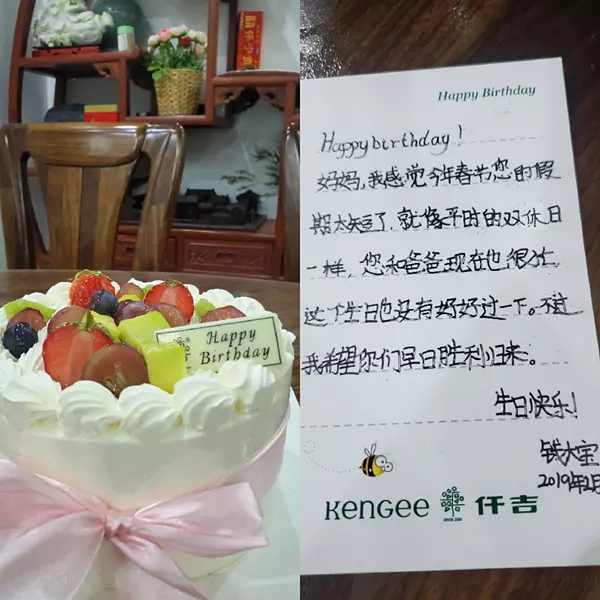 Happy
Birthday
Happy Birthday
Happy birthday!
妈妈,我感觉今年春节您的假
期太短了,就像平时的双休日
一样,您和爸爸现在也很忙,
这个生日也没有好好过一下。不过
我希望你们早日胜利归来。
生日快乐!
钱大宝
2019年2月
KENGEE 仟吉